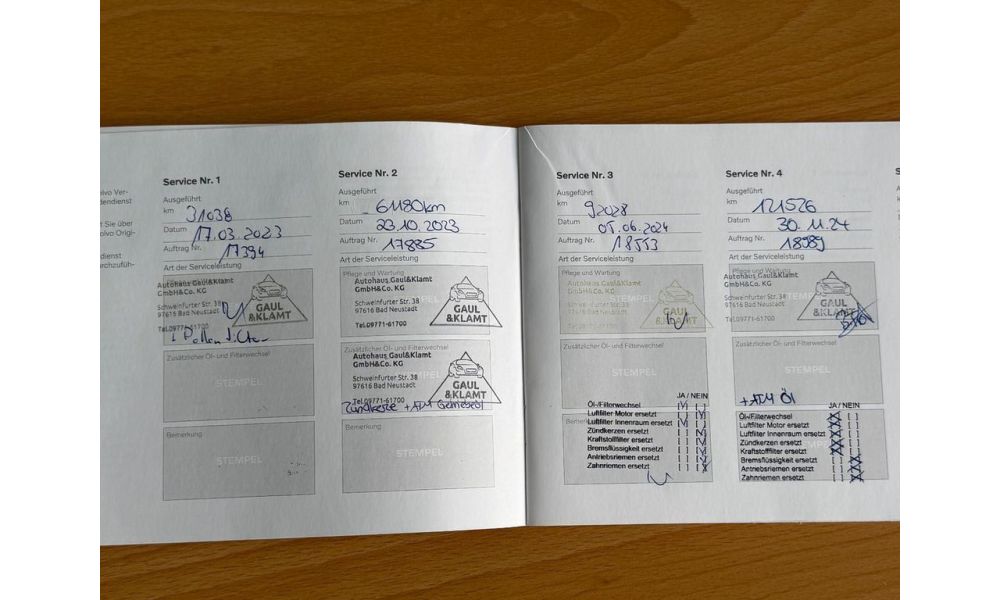 olvo Ver-
dendienst
t Sie über
olvo Origi-
dienst
urchzufüh-
Service Nr. 1
Ausgeführt
km 31038
Datum 17.03.2023
Auftrag Nr. 17394
Art der Serviceleistung
Autohaus Gaul&Klamt
GmbH&Co. KG
Schweinfurter Str. 38
97616 Bad Neustadt
Tel.09771-61700
GAUL
&KLAMT
Zusätzlicher Öl- und Filterwechsel
STEMPEL
Bemerkung
STEMPEL
Service Nr. 2
Ausgeführt
km 61180km
Datum 23.10.2023
Auftrag Nr. 17885
Art der Serviceleistung
Pflege und Wartung
Autohaus Gaul&Klamt
GmbH&Co. KG
Schweinfurter Str. 38
STEMPEL
97616 Bad Neustadt
Tel.09771-61700
GAUL
&KLAMT
Zusätzlicher Öl- und Filterwechsel
Autohaus Gaul&Klamt
GmbH&Co. KG
Schweinfurter Str. 38
STEMPEL
97616 Bad Neustadt
Tel.09771-61700
GAUL
&KLAMT
Zündkerze + ATM Getriebeöl
Bemerkung
STEMPEL
Service Nr. 3
Ausgeführt
km 92028
Datum 05.06.2024
Auftrag Nr. 18553
Art der Serviceleistung
Pflege und Wartung
Autohaus Gaul&Klamt
GmbH&Co. KG
Schweinfurter Str. 38
STEMPEL
97616 Bad Neustadt
Tel.09771-61700
GAUL
&KLAMT
Zusätzlicher Öl- und Filterwechsel
STEMPEL
JA / NEIN
Öl-/Filterwechsel
Luftfilter Motor ersetzt
Luftfilter Innenraum ersetzt
Zündkerzen ersetzt
Kraftstoffilter ersetzt
Bremsflüssigkeit ersetzt
Antriebsriemen ersetzt
Zahnriemen ersetzt
Service Nr. 4
Ausgeführt
km 121526
Datum 30.11.24
Auftrag Nr. 18989
Art der Serviceleistung
Pflege und Wartung
Autohaus Gaul&Klamt
GmbH&Co. KG
Schweinfurter Str. 38
STEMPEL
97616 Bad Neustadt
Tel.09771-61700
GAUL
&KLAMT
Zusätzlicher Öl- und Filterwechsel
STEMPEL
+ ATM Öl
JA / NEIN
Öl-/Filterwechsel
Luftfilter Motor ersetzt
Luftfilter Innenraum ersetzt
Zündkerzen ersetzt
Kraftstoffilter ersetzt
Bremsflüssigkeit ersetzt
Antriebsriemen ersetzt
Zahnriemen ersetzt